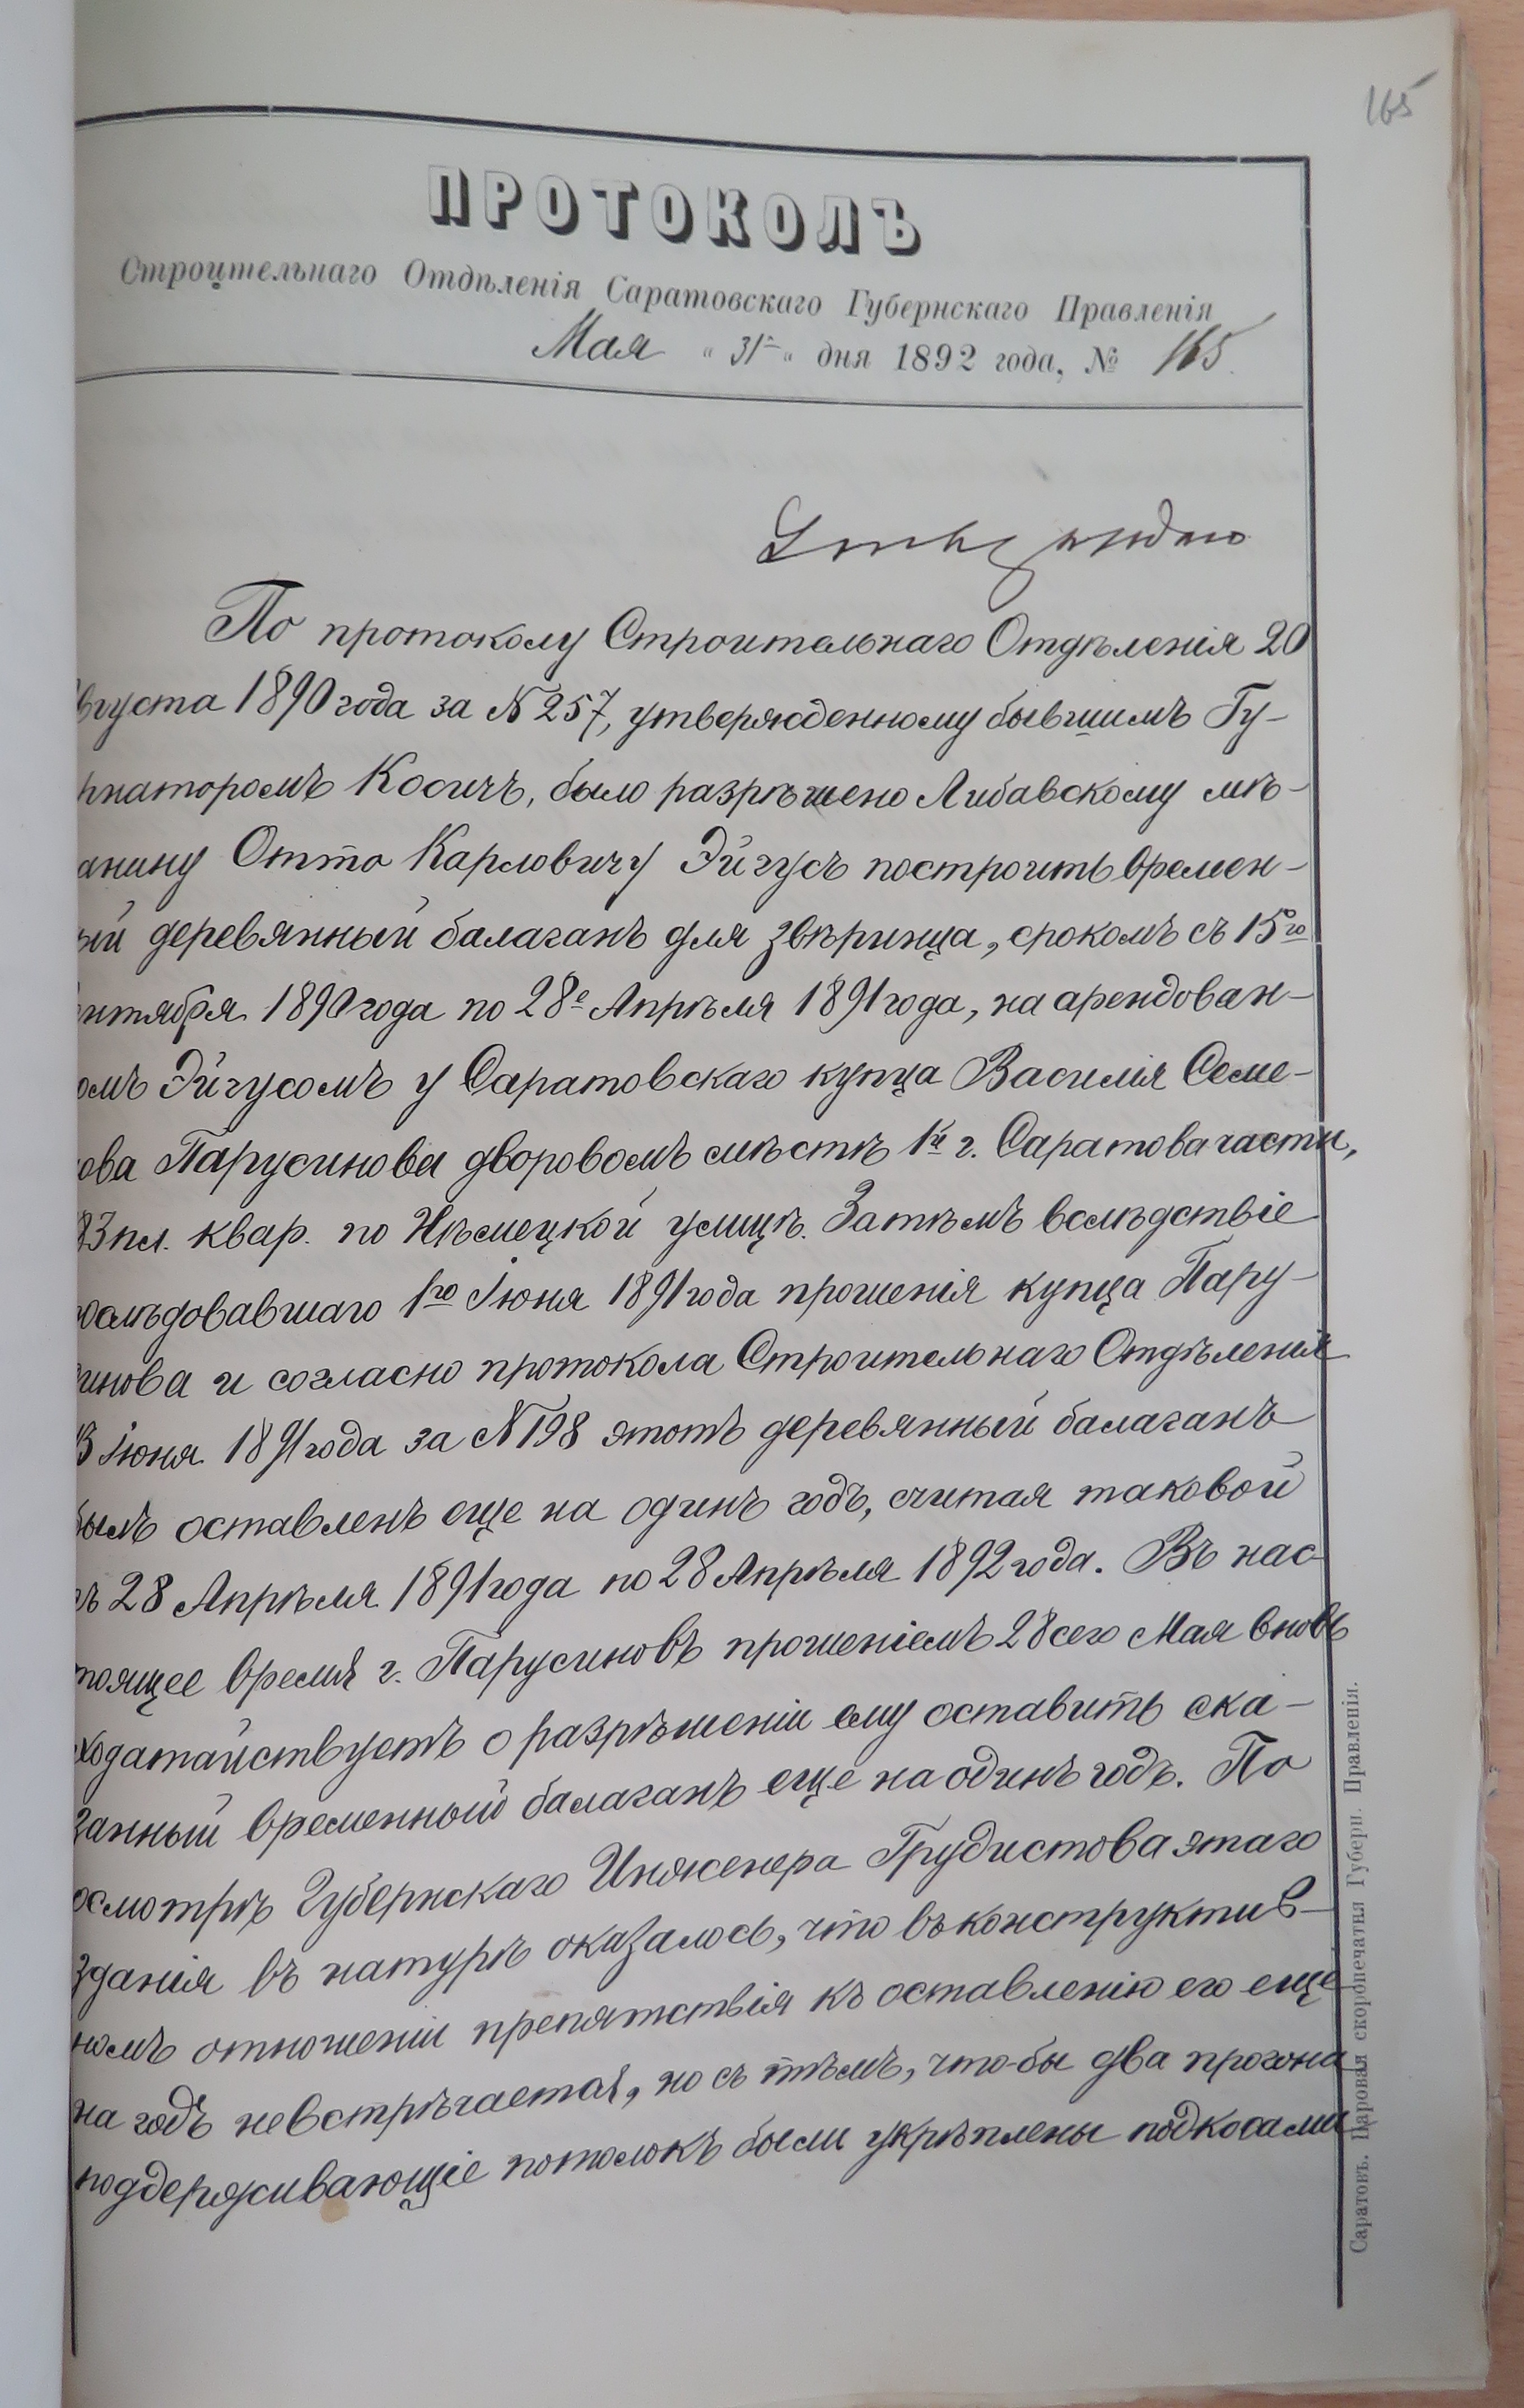 165
ПРОТОКОЛЪ
Строительнаго Отдѣленія Саратовскаго Губернскаго Правленія
Мая „ 31го „ дня 1892 года, № 165.
Утверждаю
По протоколу Строительнаго Отдѣленія 20
вгуста 1890 года за № 257, утвержденному бывшимъ Гу-
рнаторомъ Косичъ, было разрѣшено Либавскому мѣ-
анину Отто Карловичу Эйгусъ построить времен-
ый деревянный балаганъ для звѣринца, срокомъ съ 15го
ентября 1890 года по 28е Апрѣля 1891 года, на арендован-
омъ Эйгусомъ у Саратовскаго купца Василія Семе-
ова Парусинова дворовомъ мѣстѣ 1й г. Саратова части,
83 пл. квар. по Нѣмецкой улицѣ. Затѣмъ вслѣдствіе
ослѣдовавшаго 1го Іюня 1891 года прошенія купца Пару-
инова и согласно протокола Строительнаго Отдѣленія
3 Іюня 1891 года за № 198 этотъ деревянный балаганъ
былъ оставленъ еще на одинъ годъ, считая таковой
съ 28 Апрѣля 1891 года по 28 Апрѣля 1892 года. Въ нас-
тоящее время г. Парусиновъ прошеніемъ 28 сего Мая вновь
ходатайствуетъ о разрѣшеніи ему оставить ска-
занный временный балаганъ еще на одинъ годъ. По
осмотрѣ Губернскаго Инженера Грудистова этаго
зданія въ натурѣ оказалось, что въ конструктив-
номъ отношеніи препятствія къ оставленію его еще
на годъ невстрѣчается, но съ тѣмъ, что-бы два прогона
поддерживающіе потолокъ были укрѣплены подкосами
Саратовъ. Паровая скоропечатня Губерн. Правленія.